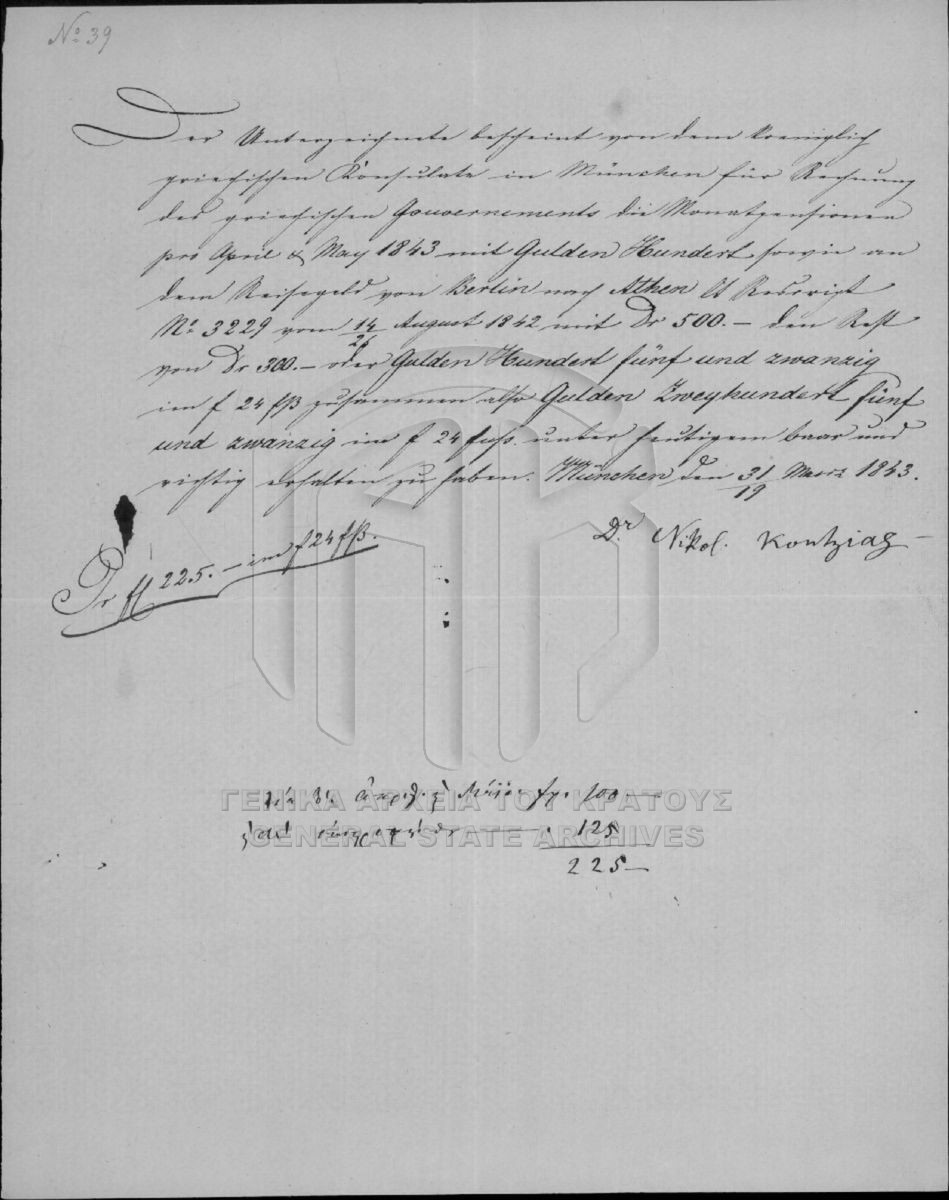 No 39
Der Unterzeichnete bescheint von dem koeniglich
griechischen Konsulate in München für Rechnung
des griechischen Gouvernements die Monatpensionen
pro April & May 1843 mit Gulden Hundert sowie an
dem Reisegeld von Berlin nach Athen lt Rescript
No 3229 vom 14/26 August 1842 mit Dr 500.– den Rest
von Dr 300.– oder Gulden Hundert fünf und zwanzig
im f 24 fß zusammen also Gulden Zweyhundert fünf
und zwanzig im f 24 fuß. unter heutigem baar und
richtig erhalten zu haben. München den 31/19 Maerz 1843.
Dr. Nikol. Kontziaς
Pr ff 225.– im f 24 fß.
100 —
125
225 —
ΓΕΝΙΚΑ ΑΡΧΕΙΑ ΤΟΥ ΚΡΑΤΟΥΣ
GENERAL STATE ARCHIVES